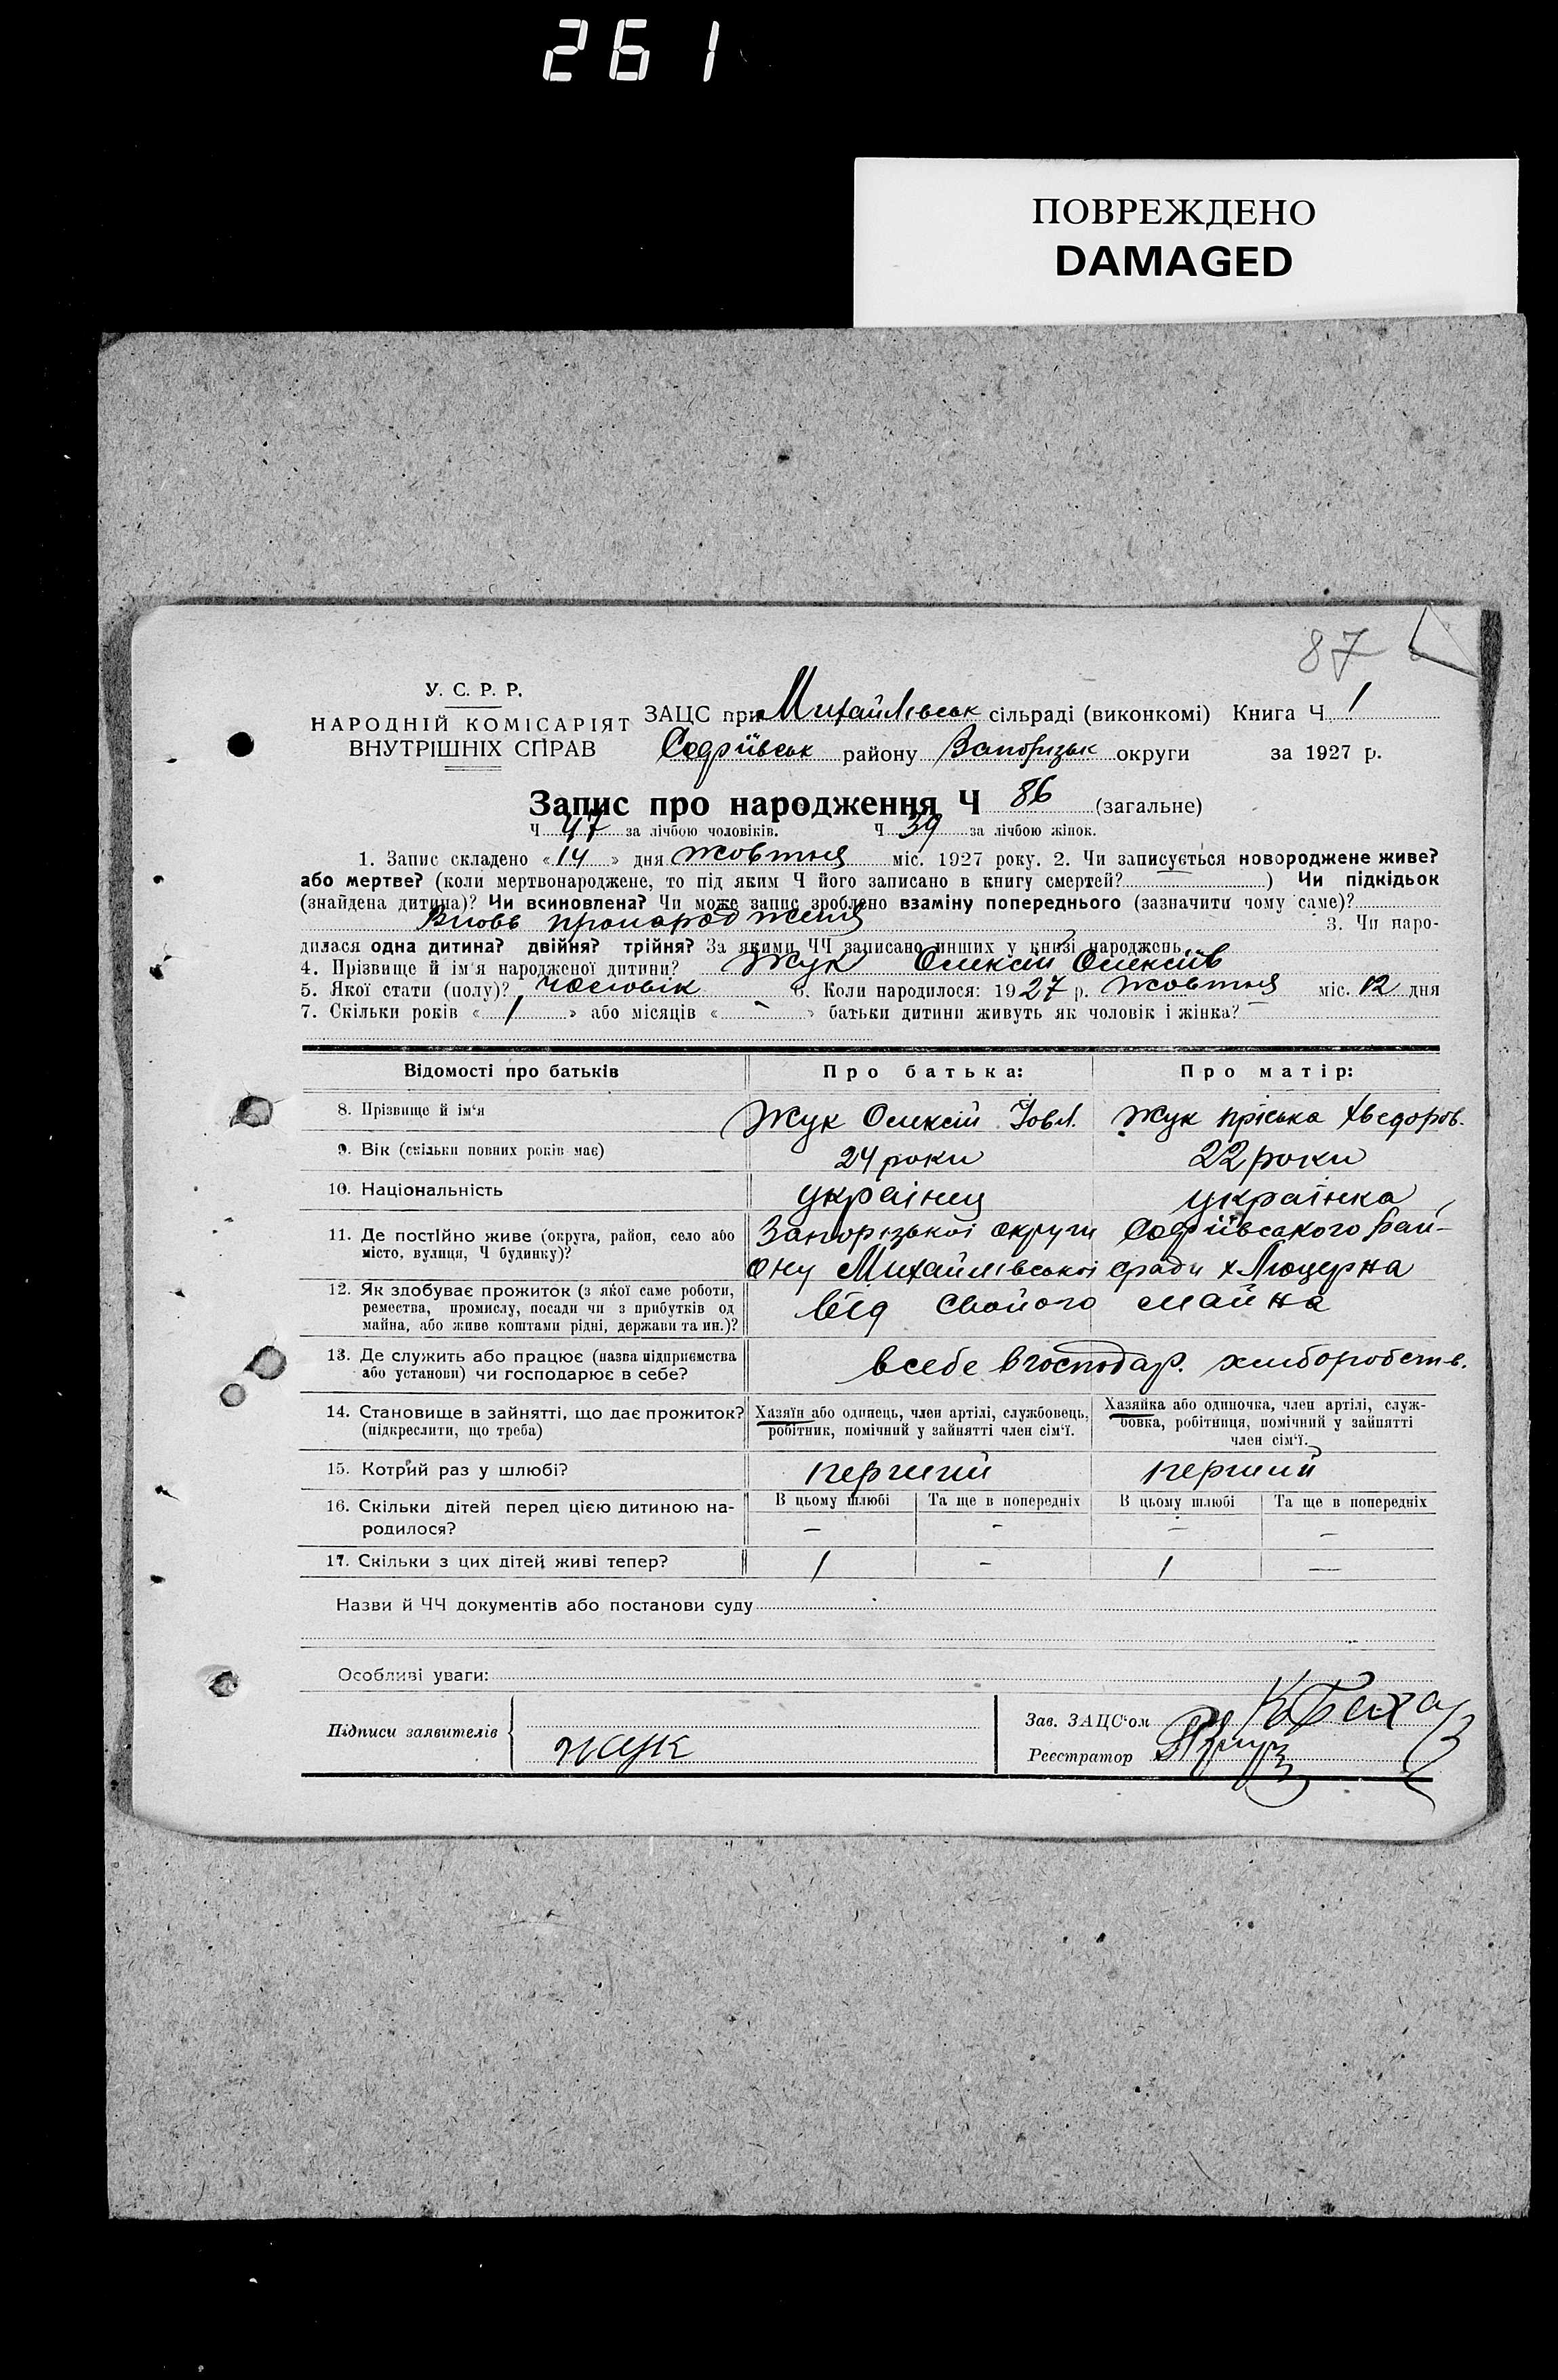 261
ПОВРЕЖДЕНО
DAMAGED
87
У. С. Р. Р.
НАРОДНІЙ КОМІСАРІЯТ
ВНУТРІШНІХ СПРАВ
ЗАЦС при Михайлівськ сільраді (виконкомі) Книга Ч. 1
Софіївськ району Запорізьк округи за 1927 р.
Запис про народження Ч 86 (загальне)
Ч 47 за лічбою чоловіків. Ч 39 за лічбою жінок.
1. Запис складено «14» дня жовтня міс. 1927 року. 2. Чи записується новороджене живе?
або мертве? (коли мертвонароджене, то під яким Ч його записано в книгу смертей?) Чи підкідьок
(знайдена дитина)? Чи всиновлена? Чи може запис зроблено взаміну попереднього (зазначити чому саме)?
Вновь 3. Чи наро-
дилася одна дитина? двійня? трійня? За якими ЧЧ записано инших у книзі народжень
4. Прізвище й ім'я народженої дитини? Жук Олексій Олексіїв
5. Якої стати (полу)? чоловік 6. Коли народилося: 1927 р. жовтня міс. 12 дня
7. Скільки років «1» або місяців «-» батьки дитини живуть як чоловік і жінка? —
Відомості про батьків Про батька: Про матір:
8. Прізвище й ім'я Жук Олексій Іовл. Жук Пріська Хведоров.
9. Вік (скільки повних років має) 24 роки 22 роки
10. Національність українец українка
11. Де постійно живе (округа, район, село або Запорізькоі округи Софіївського рай-
місто, вулиця, Ч будинку)? ону Михайлівськоі сради х Люцерна
12. Як здобуває прожиток (з якої саме роботи,
ремества, промислу, посади чи з прибутків од від свойого майна
майна, або живе коштами рідні, держави та ин.)?
13. Де служить або працює (назва підприємства
або установи) чи господарює в себе? всебе вгосподар. хлиборобств.
14. Становище в зайнятті, що дає прожиток? Хазяїн або одинець, член артілі, службовець, Хазяйка або одиночка, член артілі, служ-
(підкреслити, що треба) робітник, помічний у зайнятті член сім'ї. бовка, робітниця, помічний у зайнятті
член сім'ї.
15. Котрий раз у шлюбі? перший перший
16. Скільки дітей перед цією дитиною на- В цьому шлюбі Та ще в попередніх В цьому шлюбі Та ще в попередніх
родилося? — - — —
17. Скільки з цих дітей живі тепер? 1 - 1 —
Назви й ЧЧ документів або постанови суду
Особливі уваги:
Підписи заявителів Жук
Зав. ЗАЦС'ом
Реєстратор